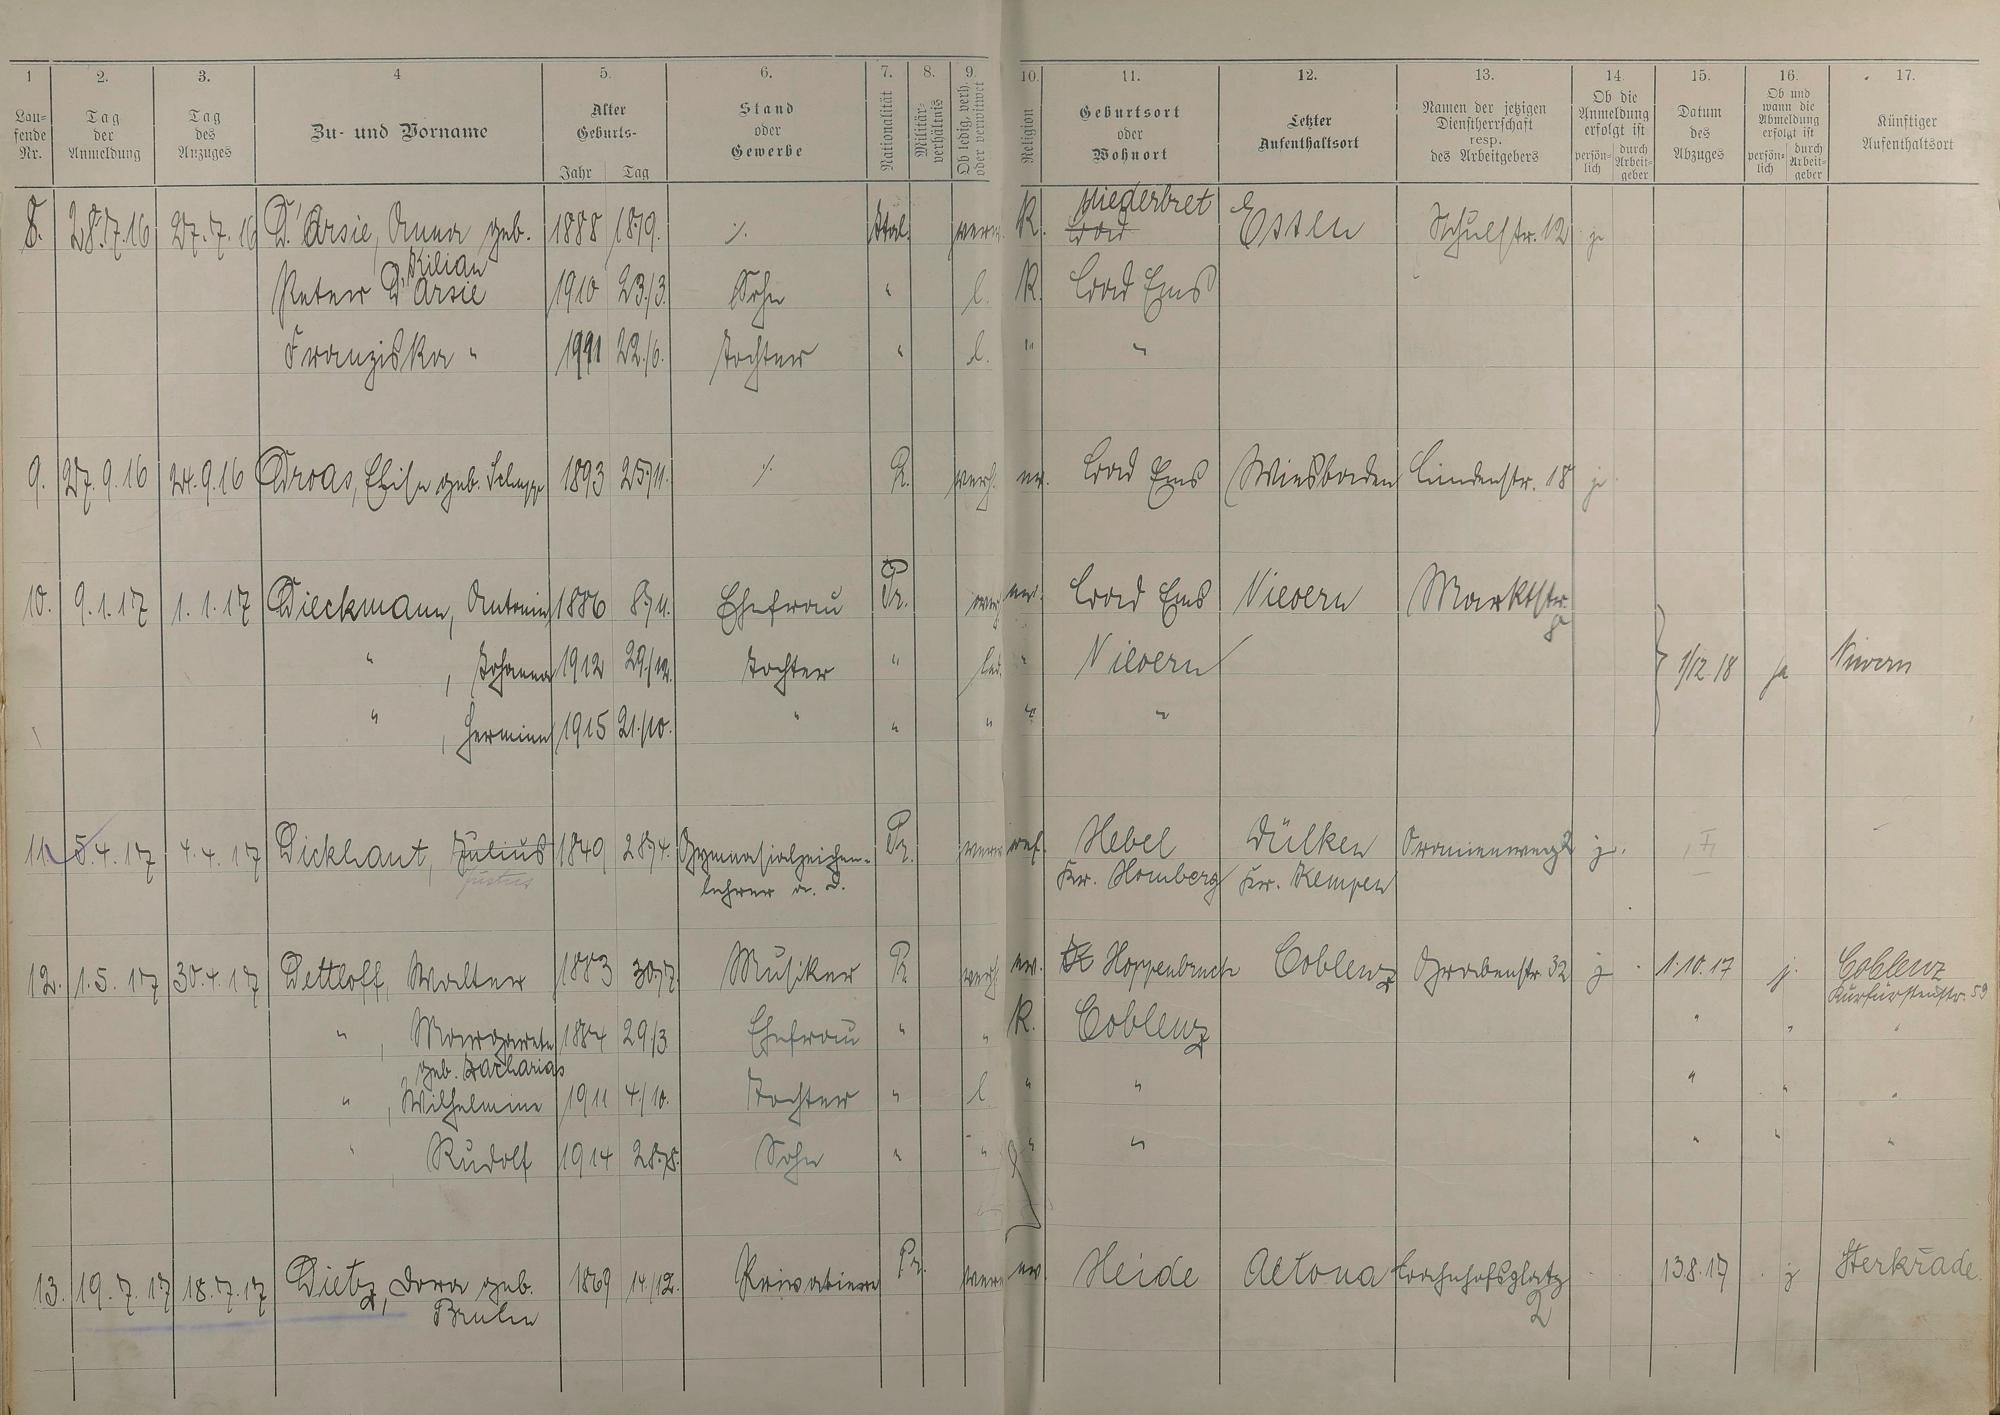 1 2. 3. 4 5. 6. 7. 8. 9. 10. 11. 12. 13. 14. 15. 16. 17.
Lau-
fende
Nr.
Tag
der
Anmeldung
Tag
des
Anzuges
Zu- und Vorname
Alter
Geburts-
Jahr Tag
Stand
oder
Gewerbe
Nationalität
Militär-
verhältnis
Ob ledig, verh.
oder verwitwet
Religion
Geburtsort
oder
Wohnort
Letzter
Aufenthaltsort
Namen der jetzigen
Dienstherrschaft
resp.
des Arbeitgebers
Ob die
Anmeldung
erfolgt ist
persön-
lich
durch
Arbeit-
geber
Datum
des
Abzuges
Ob und
wann die
Abmeldung
erfolgt ist
persön-
lich
durch
Arbeit-
geber
Künftiger
Aufenthaltsort
8. 28.7.16 27.7.16 D'Arsie, Anna geb. 1888 18/9. ./. Ital. verw. K. Niederbret Essen Schulstr. 12 j
Kilian Bad
Peter D'Arsie 1910 23./3. Sohn " l. K. Bad Ems
Franziska " 1991 22./6. Tochter " l. " "
9. 27.9.16 24.9.16 Droas, Elise geb. 1893 25/11. ./. Pr. verh. ev. Bad Ems Wiesbaden Lindenstr. 18 j
10. 9.1.17 1.1.17 Dieckmann, Antonie 1886 8/11. Ehefrau Pr. ev. Bad Ems Nievern Marktstr.
8
" , Johanna 1912 29./12. Tochter " led. " Nievern 1/12.18 ja Nievern
" , Hermine 1915 21./10. " " " " "
11. 5.4.17 4.4.17 Dickhaut, Julius 1849 28/4. Gymnasialzeichen- Pr. verw ref. Hebel Dülken Oranienweg 2 j.
Justus lehrer a. D. Kr. Homberg Kr. Kempen
12. 1.5.17 30.4.17 Dettloff, Walter 1883 30/7. Musiker Pr. verh. ev. Hoppenbruch Coblenz Grabenstr. 32 j 1.10.17 j. Coblenz
Kurfürstenstr. 59
" , Margarete 1884 29/3 Ehefrau " " K. Coblenz " " "
geb. Zacharias
" , Wilhelmine 1911 4./10. Tochter " l. " " " " "
" , Rudolf 1914 28./8. Sohn " " " " " " "
13. 19.7.17 18.7.17 Dietz, Dora geb. 1869 14./12. Privatiere Pr. verw ev. Heide Altona Bahnhofsplatz 13.8.17 j Sterkrade.
Bruhn 2